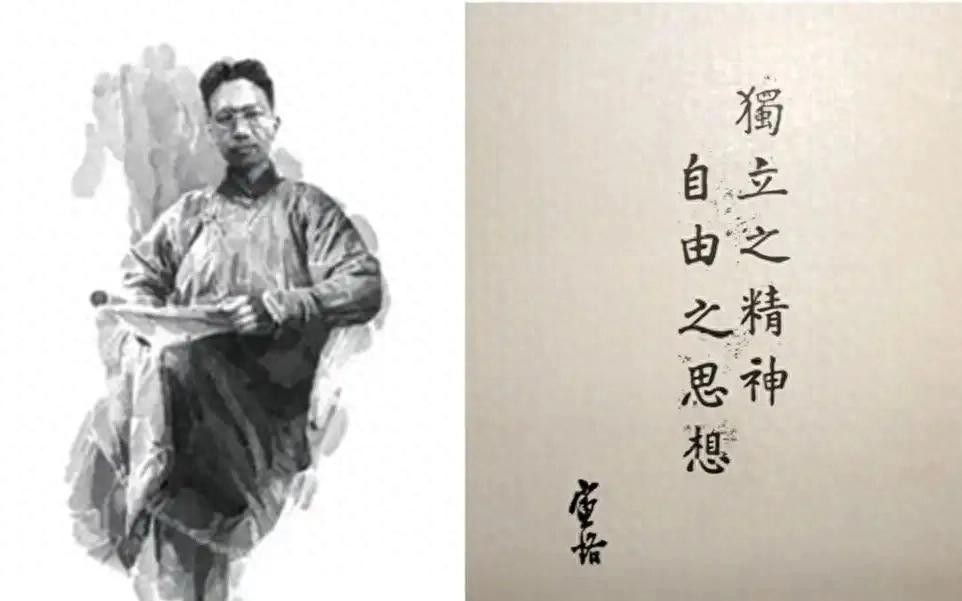 獨立之精神
自由之思想
寅恪